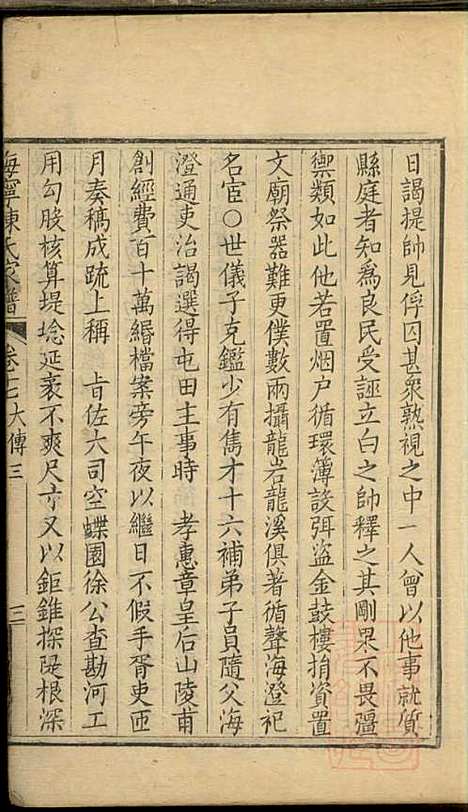 日謁提帥見俘囚甚衆熟視之中一人曾以他事就質
縣庭者知爲良民受誣立白之帥釋之其剛果不畏彊
禦類如此他若置烟户循環簿設弭盜金鼓樓捐資置
文廟祭器難更僕數兩攝龍岩龍溪俱著循聲海澄祀
名宦〇世儀子克鑑少有雋才十六補弟子員隨父海
澄通吏治謁選得屯田主事時 孝惠章皇后山陵甫
創經費百十萬緡檔案旁午夜以繼日不假手胥吏匝
月奏稿成疏上稱 旨佐大司空蝶園徐公查勘河工
用勾股核算堤埝延袤不爽尺寸又以鉅錐探隄根深
海寧陳氏家譜 卷十七大傳三 三